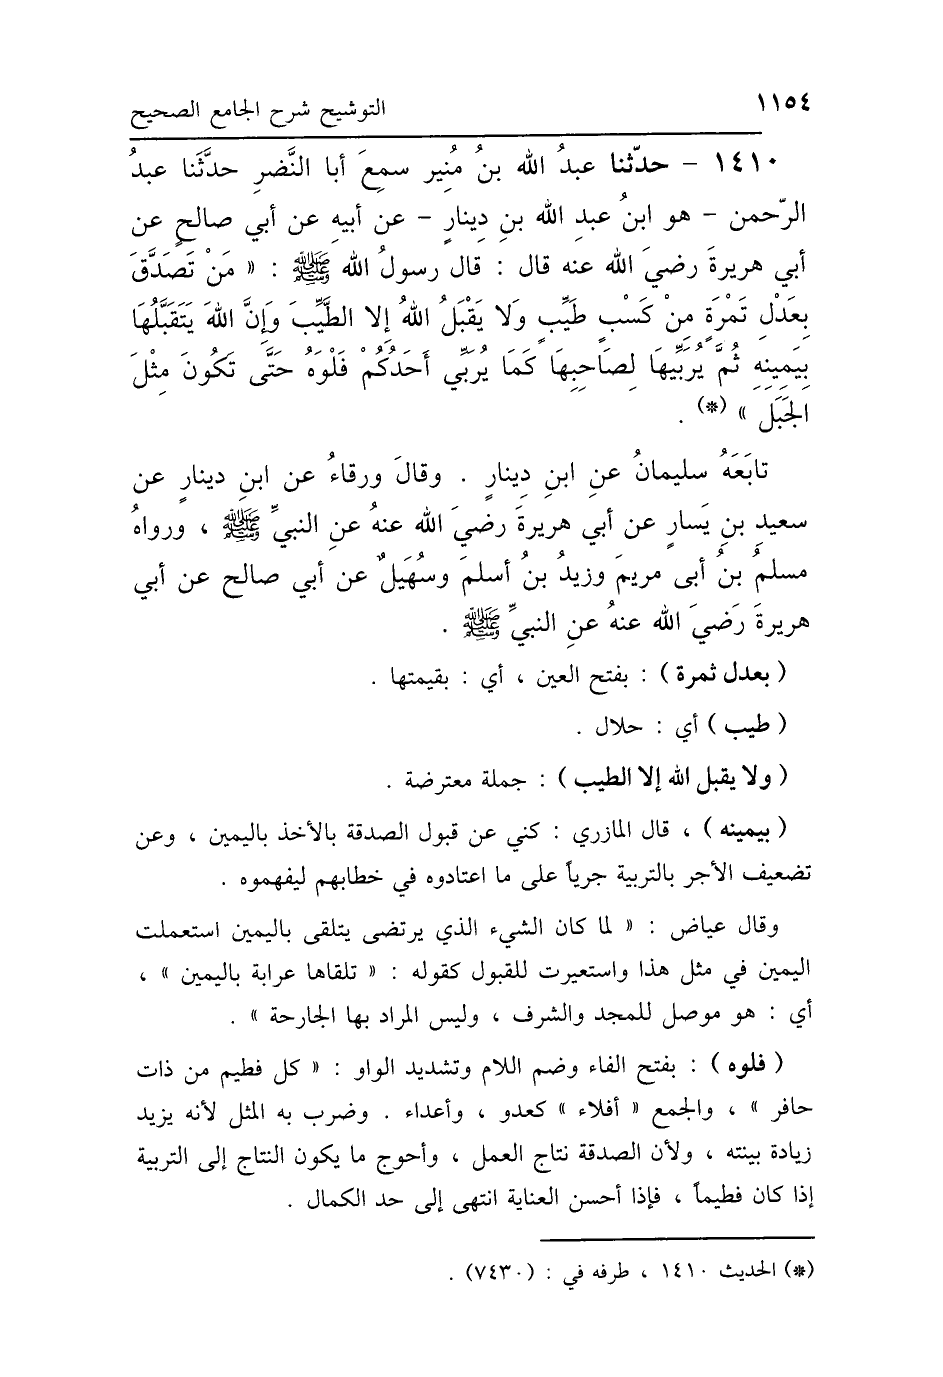 ١١٥٤
التوشيح شرح الجامع الصحيح
١٤١٠ - حدّثنا عبدُ الله بنُ مُنِير سمعَ أبا النَّضرِ حدَّثَنا عبدُ
الرّحمن - هو ابنُ عبدِ الله بنِ دِينارٍ - عن أبيهِ عن أبي صالحٍ عن
أبي هريرةَ رضيَ الله عنه قال : قال رسولُ الله ﷺ : « مَنْ تَصَدَّقَ
بِعَدْلِ تَمْرَةٍ مِنْ كَسْبٍ طَيِّبٍ وَلا يَقْبَلُ اللهُ إلا الطَّيِّبَ وَإِنَّ اللهَ يَتَقَبَّلُهَا
بِيَمِينِهِ ثُمَّ يُرَبِّيهَا لِصَاحِبِهَا كَمَا يُرَبِّي أَحَدُكُمْ فَلْوَهُ حَتَّى تَكُونَ مِثْلَ
الجَبَلِ » (*) .
تابَعَهُ سليمانُ عنِ ابنِ دِينارٍ . وقالَ ورقاءُ عن ابنِ دينارٍ عن
سعيدِ بنِ يَسارٍ عن أبي هريرةَ رضيَ الله عنهُ عنِ النبيِّ ﷺ ، ورواهُ
مسلمُ بنُ أبى مريمَ وزيدُ بنُ أسلمَ وسُهَيلٌ عن أبي صالح عن أبي
هريرةَ رَضيَ الله عنهُ عنِ النبيِّ ﷺ .
( بعدل ثمرة ) : بفتح العين ، أي : بقيمتها .
( طيب ) أي : حلال .
( ولا يقبل الله إلا الطيب ) : جملة معترضة .
( بيمينه ) ، قال المازري : كني عن قبول الصدقة بالأخذ باليمين ، وعن
تضعيف الأجر بالتربية جرياً على ما اعتادوه في خطابهم ليفهموه .
وقال عياض : « لما كان الشيء الذي يرتضى يتلقى باليمين استعملت
اليمين في مثل هذا واستعيرت للقبول كقوله : « تلقاها عرابة باليمين » ،
أي : هو موصل للمجد والشرف ، وليس المراد بها الجارحة » .
( فلوه ) : بفتح الفاء وضم اللام وتشديد الواو : « كل فطيم من ذات
حافر » ، والجمع « أفلاء » كعدو ، وأعداء . وضرب به المثل لأنه يزيد
زيادة بينته ، ولأن الصدقة نتاج العمل ، وأحوج ما يكون النتاج إلى التربية
إذا كان فطيماً ، فإذا أحسن العناية انتهى إلى حد الكمال .
(*) الحديث ١٤١٠ ، طرفه في : (٧٤٣٠) .